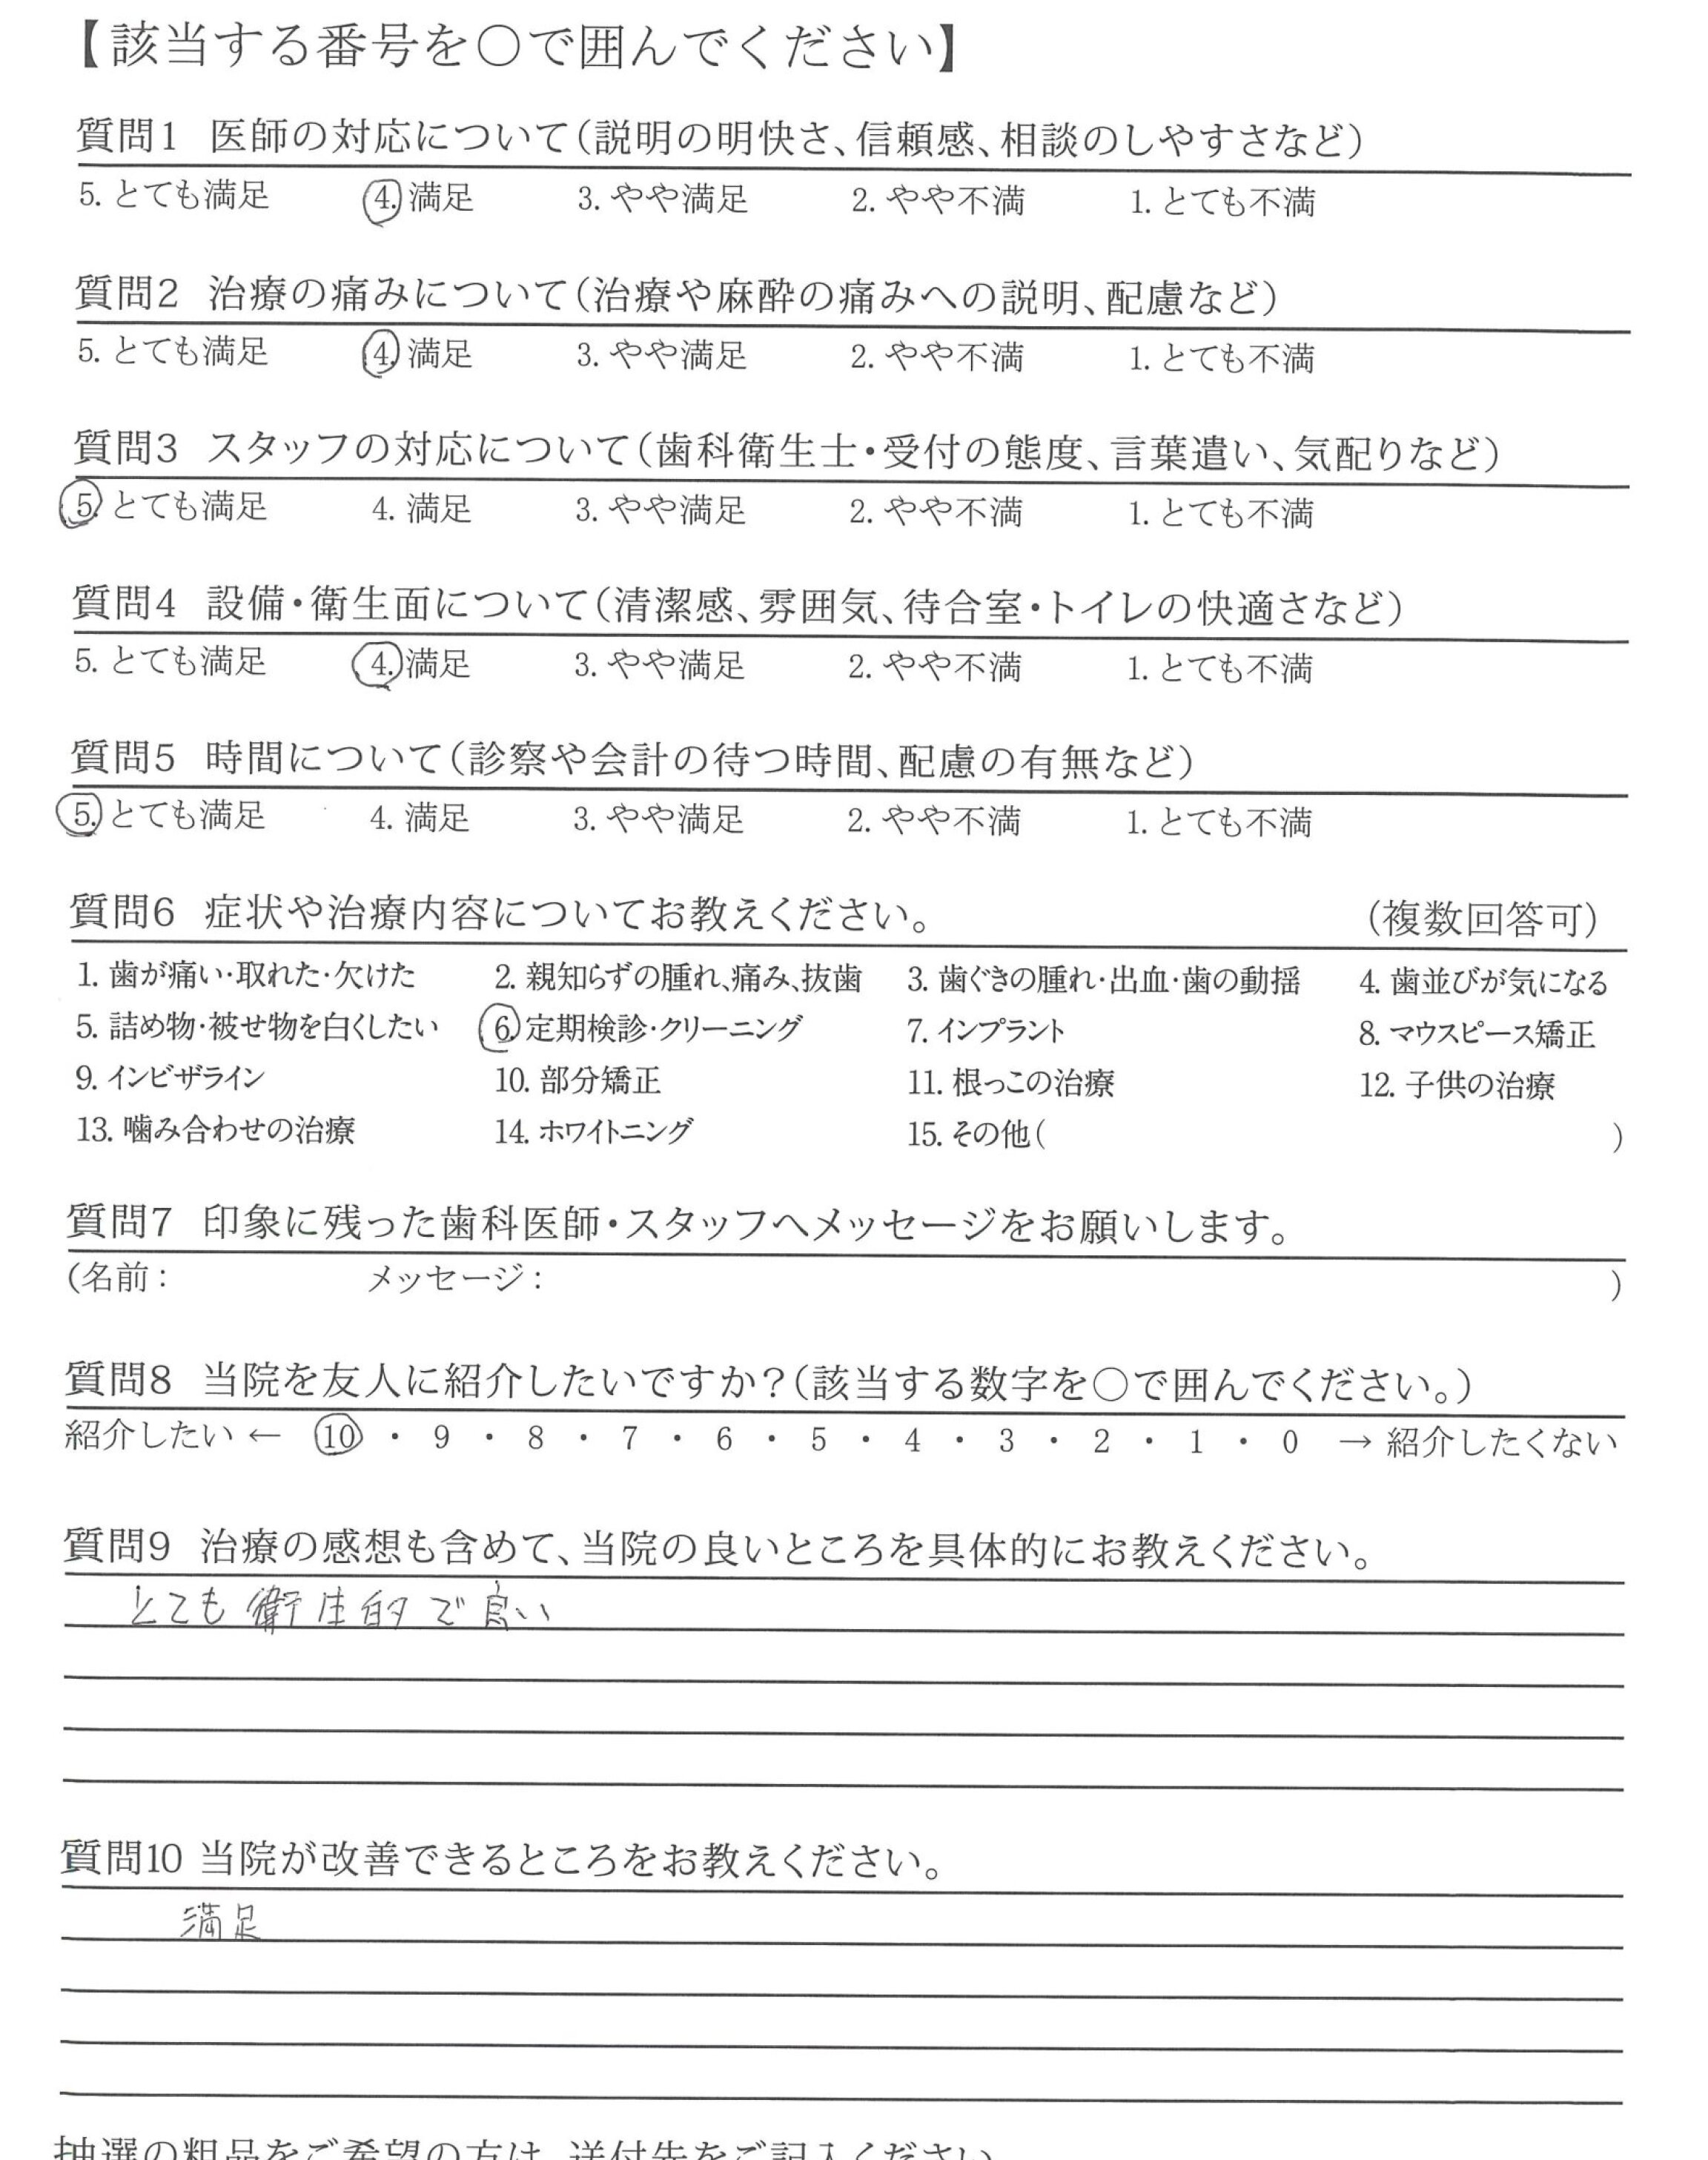 【該当する番号を○で囲んでください】
質問1 医師の対応について(説明の明快さ、信頼感、相談のしやすさなど)
5. とても満足 4. 満足 3. やや満足 2. やや不満 1. とても不満
質問2 治療の痛みについて(治療や麻酔の痛みへの説明、配慮など)
5. とても満足 4. 満足 3. やや満足 2. やや不満 1. とても不満
質問3 スタッフの対応について(歯科衛生士・受付の態度、言葉遣い、気配りなど)
5. とても満足 4. 満足 3. やや満足 2. やや不満 1. とても不満
質問4 設備・衛生面について(清潔感、雰囲気、待合室・トイレの快適さなど)
5. とても満足 4. 満足 3. やや満足 2. やや不満 1. とても不満
質問5 時間について(診察や会計の待つ時間、配慮の有無など)
5. とても満足 4. 満足 3. やや満足 2. やや不満 1. とても不満
質問6 症状や治療内容についてお教えください。 (複数回答可)
1. 歯が痛い・取れた・欠けた 2. 親知らずの腫れ、痛み、抜歯 3. 歯ぐきの腫れ・出血・歯の動揺 4. 歯並びが気になる
5. 詰め物・被せ物を白くしたい 6. 定期検診・クリーニング 7. インプラント 8. マウスピース矯正
9. インビザライン 10. 部分矯正 11. 根っこの治療 12. 子供の治療
13. 噛み合わせの治療 14. ホワイトニング 15. その他( )
質問7 印象に残った歯科医師・スタッフへメッセージをお願いします。
(名前: メッセージ: )
質問8 当院を友人に紹介したいですか?(該当する数字を○で囲んでください。)
紹介したい ← 10 ・ 9 ・ 8 ・ 7 ・ 6 ・ 5 ・ 4 ・ 3 ・ 2 ・ 1 ・ 0 → 紹介したくない
質問9 治療の感想も含めて、当院の良いところを具体的にお教えください。
とても衛生的で良い
質問10 当院が改善できるところをお教えください。
満足
抽選の粗品をご希望の方は、送付先をご記入ください